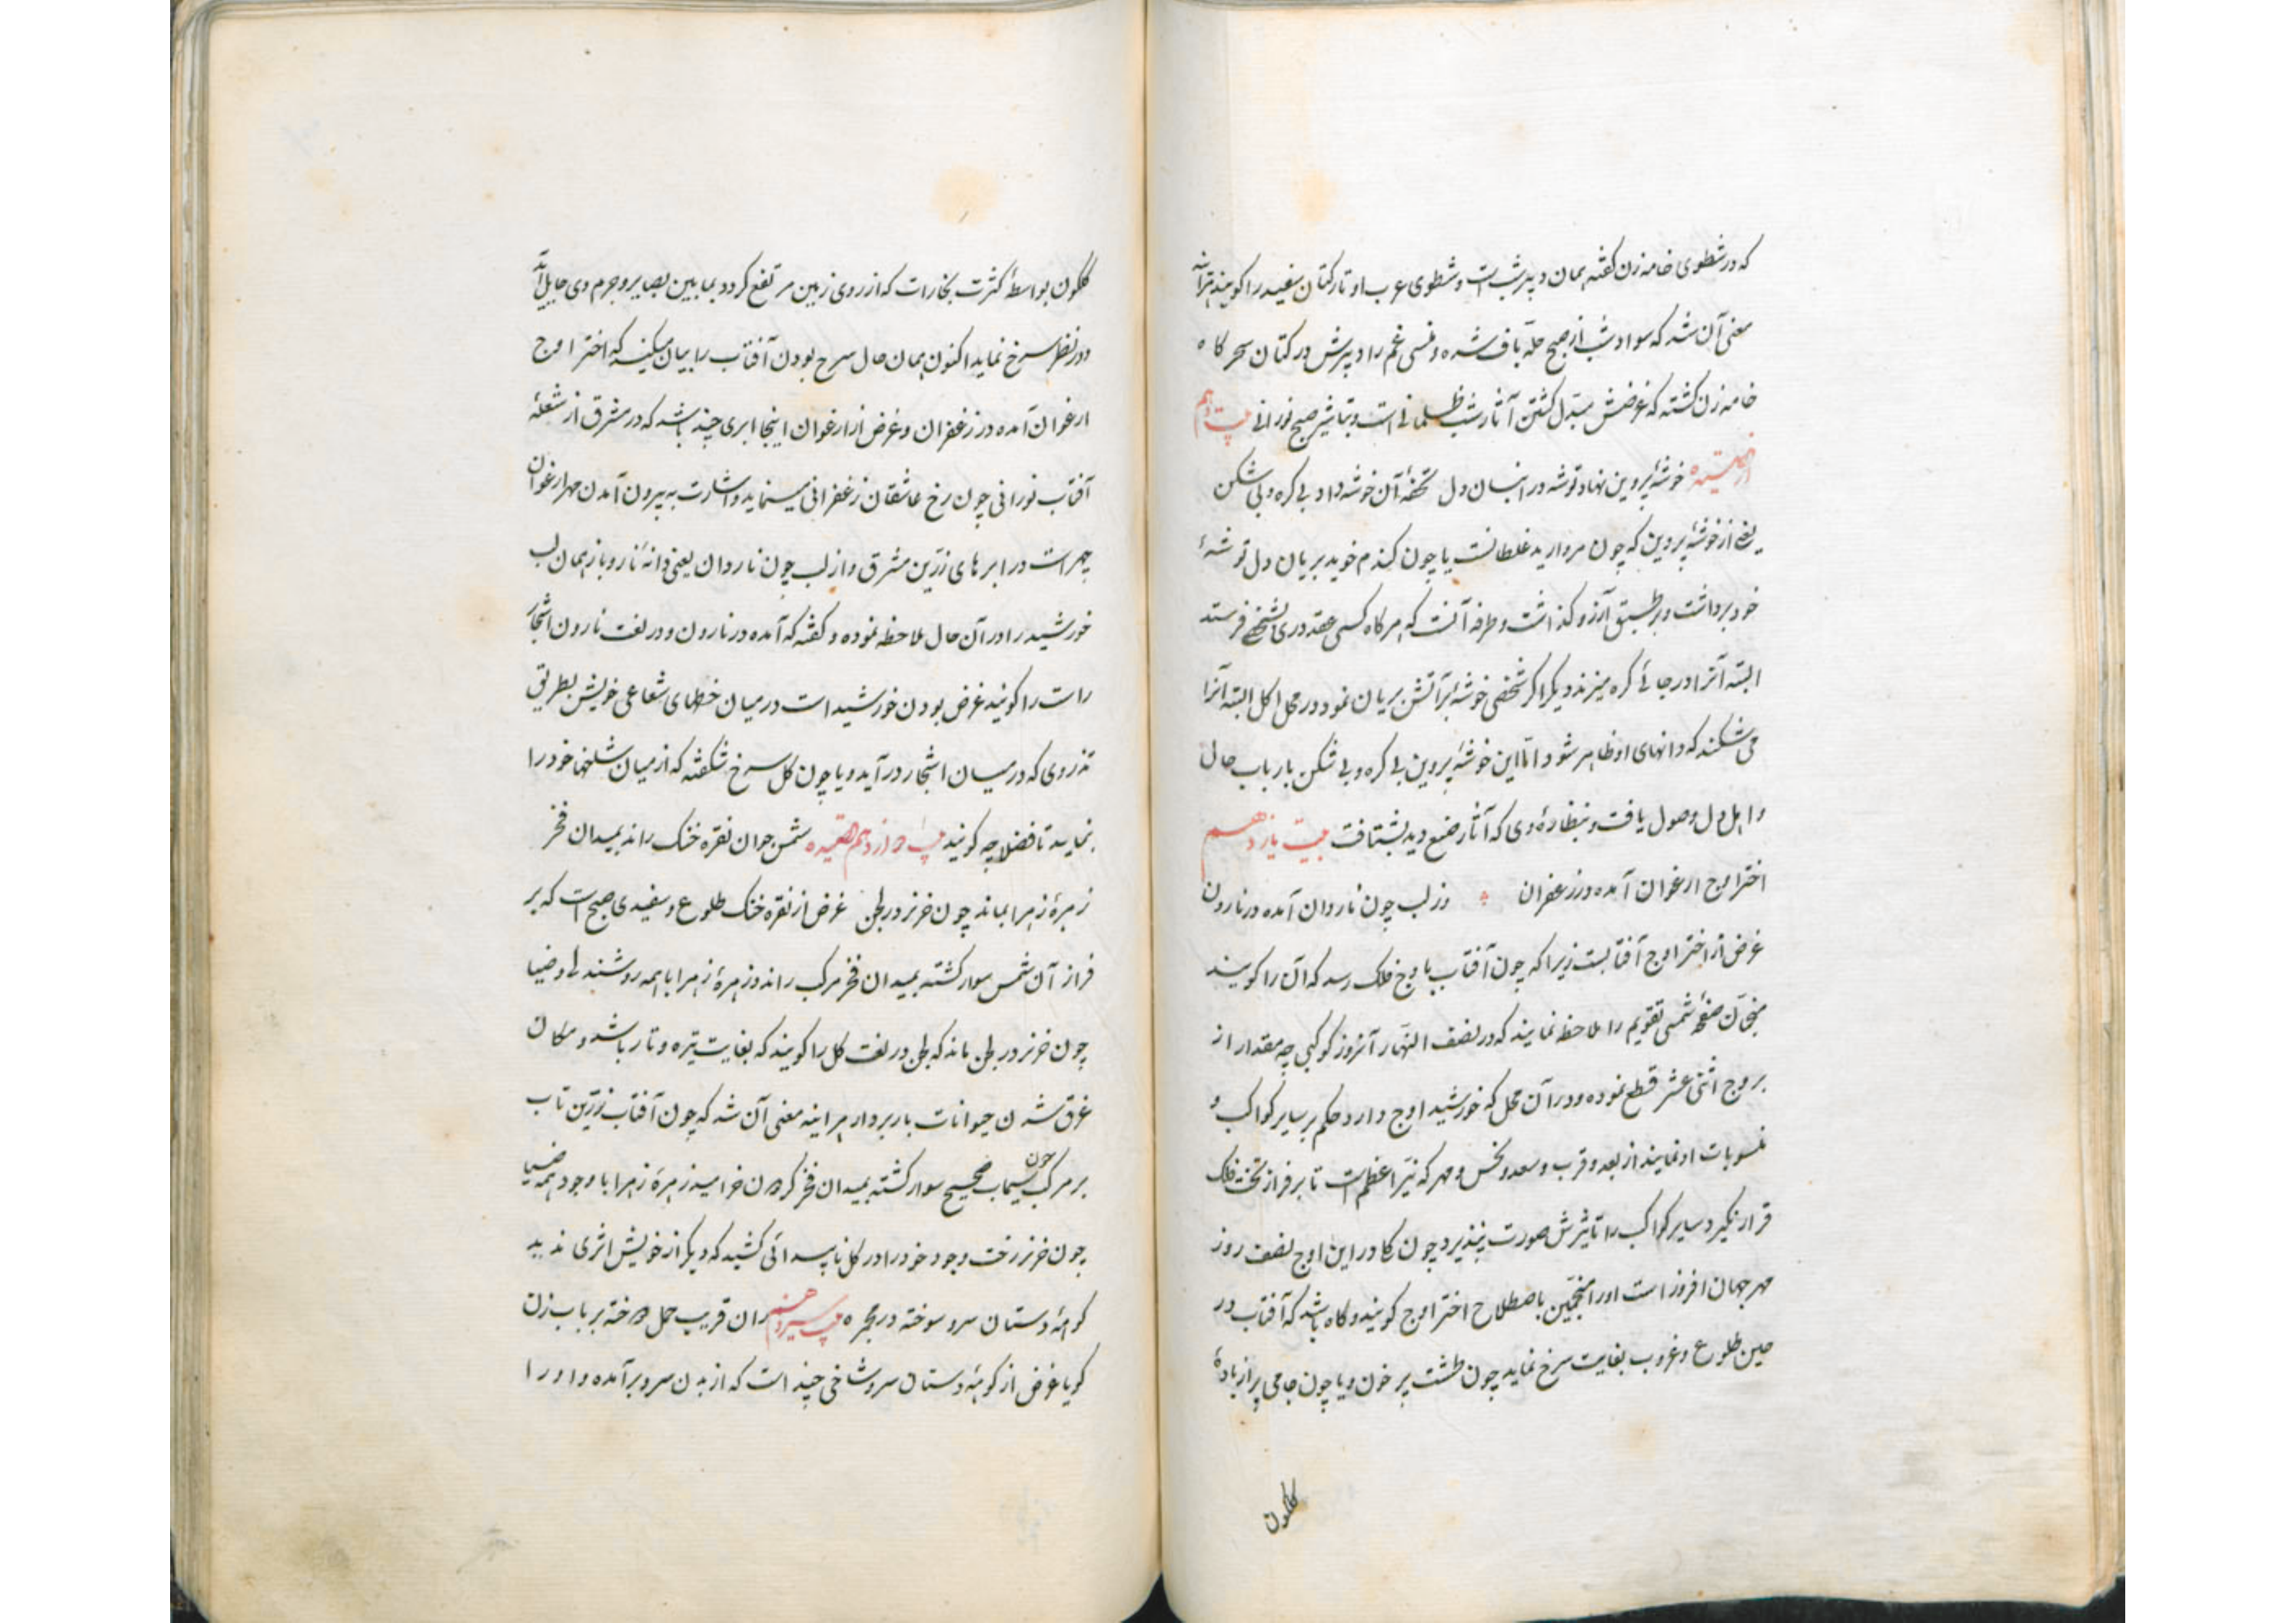 که در شطوی خامه زن کفته همان دبیر شب است و شطوی عرب او تار کتان سفید را کویند
معنی آن شد که سواد شب از صبح حله باف شده و غسی غم را دبیرش در کتان سحرکاه
خامه زن کشته که غرضش مبدل کشتن آثار شب ظلمانی است و تباشیر صبح نورانی بیت دهم
از قصیده خوشهٔ پروین نهاد توشه در انبان دل تحفهٔ آن خوشه داد بی کره و بی شکن
یعنی از خوشهٔ پروین که چون مروارید غلطانست یا چون کندم خوید بریان دل توشهٔ
خود برداشت و بر طبق آرزو کذاشت و طرفه آنست که هرکاه کسی عقد دری بشخصی فرستد
البته آنرا در جائی کره میزند دیکر اکر شخصی خوشهٔ بر آتش بریان نمود در محل اکل البته آنرا
می شکند که دانهای او ظاهر شود اما این خوشهٔ پروین بی کره و بی شکن بارباب حال
و اهل دل وصول یافت و بنظارهٔ وی که آثار صنع دید بشتافت بیت یازدهم
اختر اوج ارغوان آمده در زعفران وز لب چون ناروان آمده در نارون
غرض از اختر اوج آفتابست زیرا که چون آفتاب باوج فلک رسد که آن را کویند
منجمان صفحهٔ شمسی تقویم را ملاحظه نمایند که در نصف النهار آنروز کوکبی چه مقدار از
بروج اثنی عشر قطع نموده و در آن محل که خورشید اوج دارد حکم بر سایر کواکب و
منسوبات او نمایند از بعد و قرب و سعد و نحس و مهر که نیر اعظم است تا بر فراز تخت فلک
قرار نکیرد سایر کواکب را تاثیرش صورت نپذیرد چون کا در این اوج نصف روز
مهر جهان افروز است او را منجمین باصطلاح اختر اوج کویند و کاه باشد که آفتاب در
حین طلوع و غروب بغایت سرخ نماید چون طشت پر خون و یا چون جامی پر از بادهٔ
کلکون
کلکون بواسطهٔ کثرت بخارات که از روی زمین مرتفع کردد بمابین بصایر و جرم وی حایل آید
و در نظر سرخ نماید اکنون همان حال سرخ بودن آفتاب را بیان میکند که اختر اوج
ارغوان آمده در زعفران و غرض از ارغوان اینجا ابری چند باشد که در مشرق از شعلهٔ
آفتاب نورانی چون رخ عاشقان زعفرانی مینماید و اشارت به بیرون آمدن مهر ارغوان
چهر است در ابرهای زرین مشرق و از لب چون ناروان یعنی دانهٔ نار و باز همان لب
خورشید را در آن حال ملاحظه نموده و کفته که آمده در نارون و در لغت نارون اشجار
راست را کویند غرض بودن خورشید است در میان خطهای شعاعی خویش بطریق
تذروی که در میان اشجار درآید و یا چون کل سرخ شکفته که از میان شاخها خود را
نماید تا فضلا چه کویند بیت دوازدهم قصیده شمس جوان نقره خنک راند بمیدان فخر
زهرهٔ زهرا بماند چون خر نر در لجن غرض از نقره خنک طلوع و سفیدی صبح است که بر
فراز آن شمس سوار کشته بمیدان فخر مرکب راند و زهرهٔ زهرا باهمه روشندلی و ضیا
چون خر نر در لجن ماند که لجن در لغت کل را کویند که بغایت تیره و تار باشد و مکان
غرق شدن حیوانات باربردار هر اینه معنی آن شد که چون آفتاب زرین تاب
بر مرکب چون سیماب صحیح سوار کشته بمیدان فخر کردن خرامید زهرهٔ زهرا با وجود همه ضیا
چون خر نر رخت وجود خود را در کل ناپیدائی کشید که دیکر از خویش اثری ندید
کوههٔ دستان سرو سوخته در مجره بیت سیزدهم ران قریب حمل دوخته بر بابزن
کویا غرض از کوههٔ دستان سرو شاخی چند است که از بدن سرو برآمده و او را